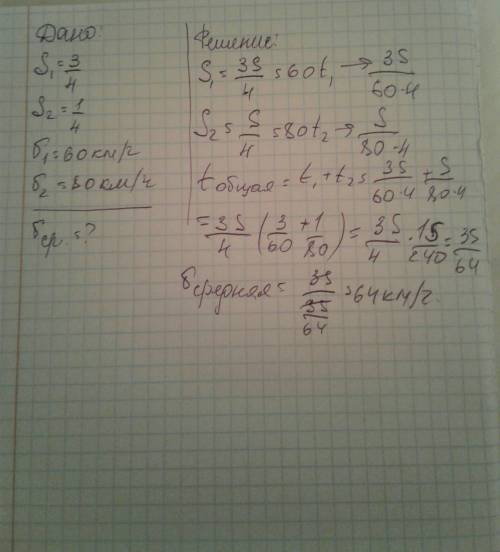 Дано:
S₁ = 3/4
S₂ = 1/4
υ₁ = 60 км/ч
υ₂ = 80 км/ч
υср. = ?
Решение:
S₁ = 3S/4 = 60t₁ → 3S/60·4
S₂ = S/4 = 80t₂ → S/80·4
t общая = t₁ + t₂ = 3S/60·4 + S/80·4
= 3S/4 (3/60 + 1/80) = 3S/4 · 15/240 = 3S/64
υ средняя = 3S/3S/64 = 64 км/ч